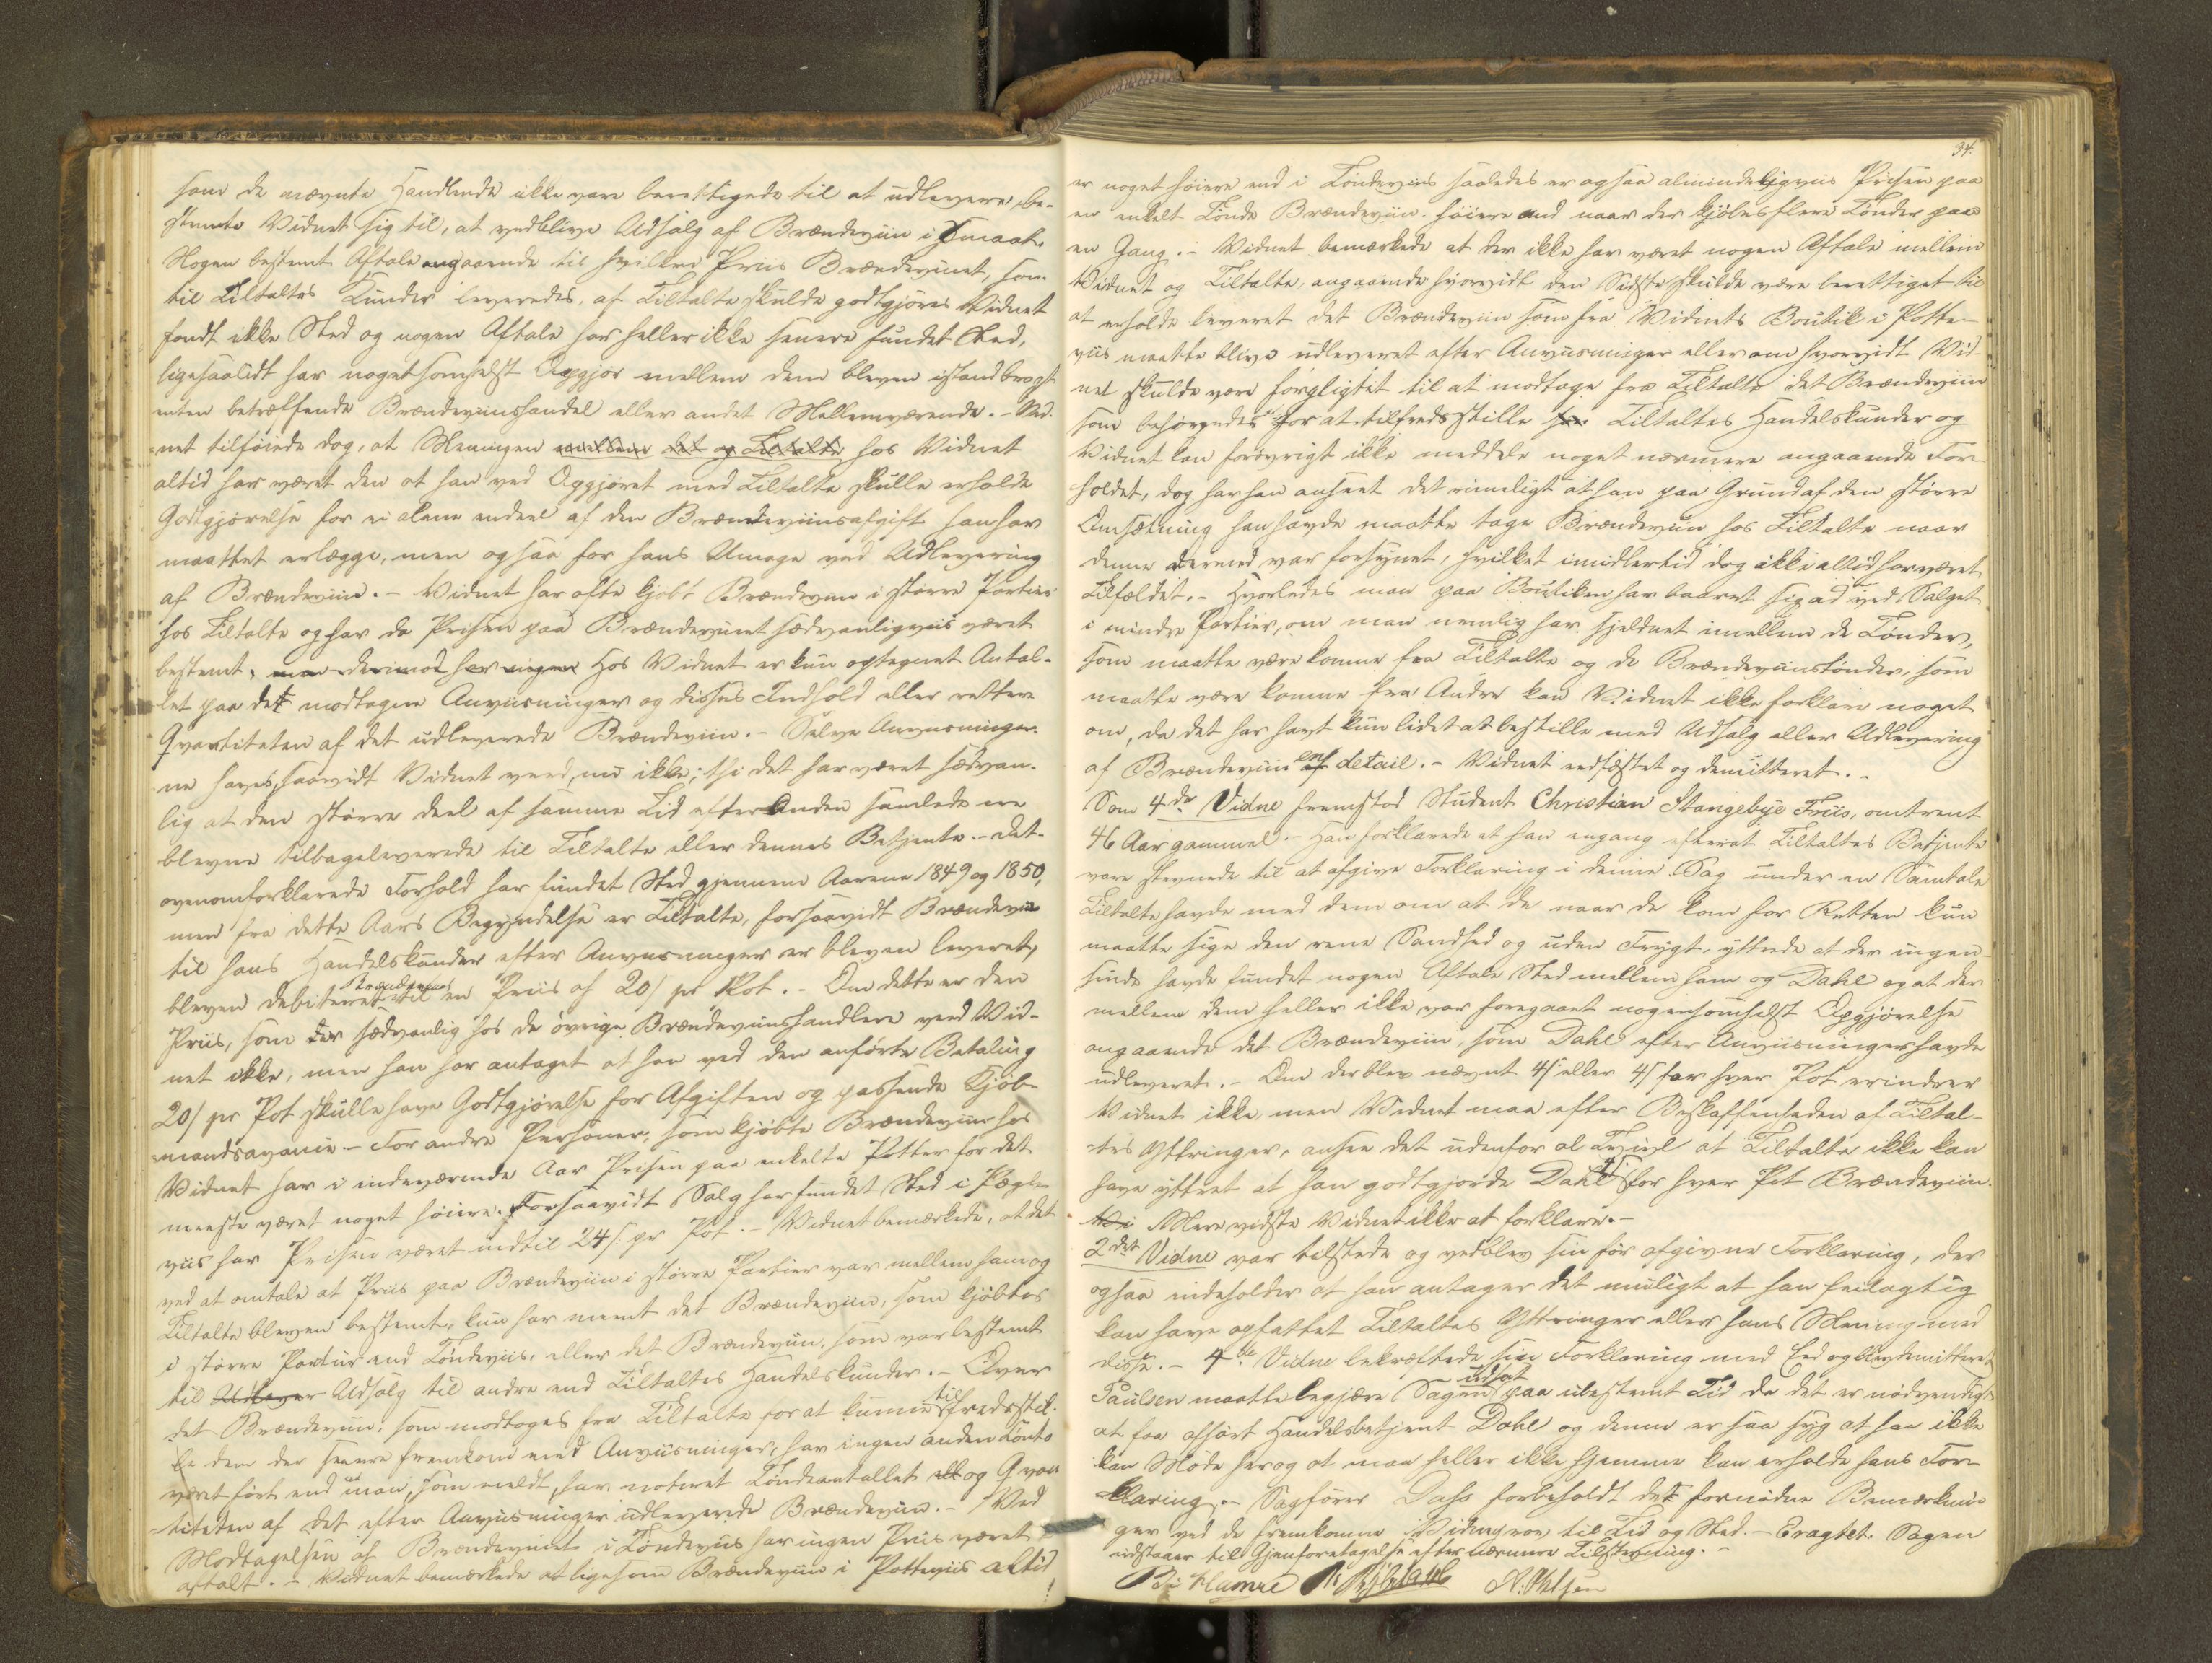 som de nævnte Handlende ikke vare berettigede til at udlevere, be-
stemte Vidnet sig til, at vedblive Udsalg af Brændeviin i Smaat.
Nogen bestemt Aftale angaaende til hvilken Priis Brændevinet, som
til Tiltaltes Kunder leveredes, af Tiltalte skulde godtgjøres Vidnet
fandt ikke Sted og nogen Aftale har heller ikke senere fundet Sted,
ligesaalidt har nogetsomhelst Opgjør mellem dem bleven istandbragt
enten betræffende Brændeviinshandel eller andet Mellemværende. – Vid-
net tilføiede dog, at Meningen mellem det og Tiltalte hos Vidnet
altid har været den at han ved Opgjøret med Tiltalte skulle erholde
Godtgjørelse for ei alene endeel af den Brændeviinsafgift han har
maattet erlægge, men ogsaa for hans Umage ved Udlevering
af Brændeviin. – Vidnet har ofte kjøbt Brændeviin i større Partier
hos Tiltalte og har da Prisen paa Brændevinet sædvanligviis været
bestemt, men derimod har ingen Hos Vidnet er kun optegnet Antal-
let paa de modtagne Anviisninger og disses Indhold eller rettere
Qvantiteten af det udleverede Brændeviin. – Selve Anviisninger-
ne haves, saavidt Vidnet veed, nu ikke; thi det har været sædvan-
lig at den større deel af samme Tid efter anden samlede ere
blevne tilbageleverede til Tiltalte eller dennes Betjente. – Det
ovenomforklarede Forhold har fundet Sted gjennem Aarene 1849 og 1850,
men fra dette Aars Begyndelse er Tiltalte, forsaavidt Brændeviin
til hans Handelskunder efter Anviisninger er bleven leveret,
bleven debiteret Brændeviinet til en Priis af 20/ pr Pot. – Om dette er den
Priis, som er sædvanlig hos de øvrige Brændeviinshandlere veed Vid-
net ikke, men han har antaget at han ved den anførte Betaling
20/ pr Pot skulle have Godtgjørelse for Afgiften og passende Kjøb-
mandsavance. – For andre Personer, som kjøbte Brændeviin hos
Vidnet har i indeværende Aar Prisen paa enkelte Potter for det
meeste været noget høiere. Forsaavidt Salg har fundet Sted i Pægle-
viis har Prisen været indtil 24/ pr Pot. – Vidnet bemærkede, at det
ved at omtale at Priis paa Brændeviin i større Partier var mellem ham og
Tiltalte bleven bestemt, kun har meent det Brændeviin, som kjøbtes
i større Partier end Tøndeviis, eller det Brændeviin, som var bestemt
til Udsalg til andre end Tiltaltes Handelskunder. – Over
det Brændeviin, som modtoges fra Tiltalte for at kunne tilfredsstil-
le dem der senere fremkom med Anviisninger, har ingen anden Conto
været ført end man, som meldt, har noteret Tøndeantallet og Qvan-
titeten af det efter Anviisninger udleverede Brændeviin. – Ved
Modtagelsen af Brændevinet i Tøndeviis har ingen Priis været
aftalt. – Vidnet bemærkede at ligesom Brændeviin i Potteviis altid
34.
er noget høiere end i Tøndeviis saaledes er ogsaa almindeligviis Prisen paa
en enkelt Tønde Brændeviin høiere end naar der kjøbes flere Tønder paa
en Gang. – Vidnet bemærkede at der ikke har været nogen Aftale mellem
Vidnet og Tiltalte, angaaende hvorvidt den Sidste skulde være berettiget til
at erholde leveret det Brændeviin som fra Vidnets Boutik i Potte-
viis maatte blive udleveret efter Anviisninger eller om hvorvidt Vid-
net skulde være forpligtet til at modtage fra Tiltalte det Brændeviin
som behøvedes for at tilfredsstille Tiltaltes Handelskunder og
Vidnet kan forøvrigt ikke meddele noget nærmere angaaende For-
holdet, dog har han anseet det rimeligt at han paa Grund af den større
Omsætning han havde maatte tage Brændeviin hos Tiltalte naar
denne dermed var forsynet, hvilket imidlertid dog ikke altid har været
Tilfældet. – Hvorledes man paa Boutiken har baaret sig ad ved Salget
i mindre Partier, om man nemlig har skjelnet imellem de Tønder,
som maatte være komne fra Tiltalte og de Brændeviinstønder, som
maatte være komne fra Andre kan Vidnet ikke forklare noget
om, da det har havt kun lidet at bestille med Udsalg eller Udlevering
af Brændeviin en detail. – Vidnet eedfæstet og demitteret. –
Som 4de Vidne fremstod Student Christian Stangebye Friis, omtrent
46 Aar gammel. – Han forklarede at han engang efterat Tiltaltes Betjente
vare stevnede til at afgive Forklaring i denne Sag under en Samtale
Tiltalte havde med dem om at de naar de kom for Retten kun
maatte sige den rene Sandhed og uden Frygt, yttrede at der ingen-
sinde havde fundet nogen Aftale Sted mellem ham og Dahl og at der
mellem dem heller ikke var foregaaet nogensomhelst Opgjørelse
angaaende det Brændeviin, som Dahl efter Anviisninger havde
udleveret. – Om der blev nævnt 4/ eller 4/ for hver Pot erindrer
Vidnet ikke men Vidnet maa efter Beskaffenheden af Tiltal-
tes Yttringer, ansee det udenfor al Tvivl at Tiltalte ikke kan
have yttret at han godtgjorde Dahl 4/ for hver Pot Brændeviin.
Mere vidste Vidnet ikke at forklare. –
2det Vidne var tilstede og vedblev sin før afgivne Forklaring, der
ogsaa indeholder at han antager det muligt at han feilagtig
kan have opfattet Tiltaltes Yttringer eller hans Mening med
disse. – 4de Vidne bekræftede sin Forklaring med Eed og blev demitteret
Paulsen maatte begjære Sagen udsat paa ubestemt Tid da det er nødvendigt
at faa afhørt Handelsbetjent Dahl og denne er saa syg at han ikke
kan Møde her og at man heller ikke hjemme kan erholde hans For-
klaring. – Sagfører Dahs forbeholdt de fornødne Bemærknin-
ger ved de fremkomne Vidnesvon til Tid og Sted. – Eragtet. Sagen
udstaaer til Gjenforetagelse efter nærmere Tilstevning. –